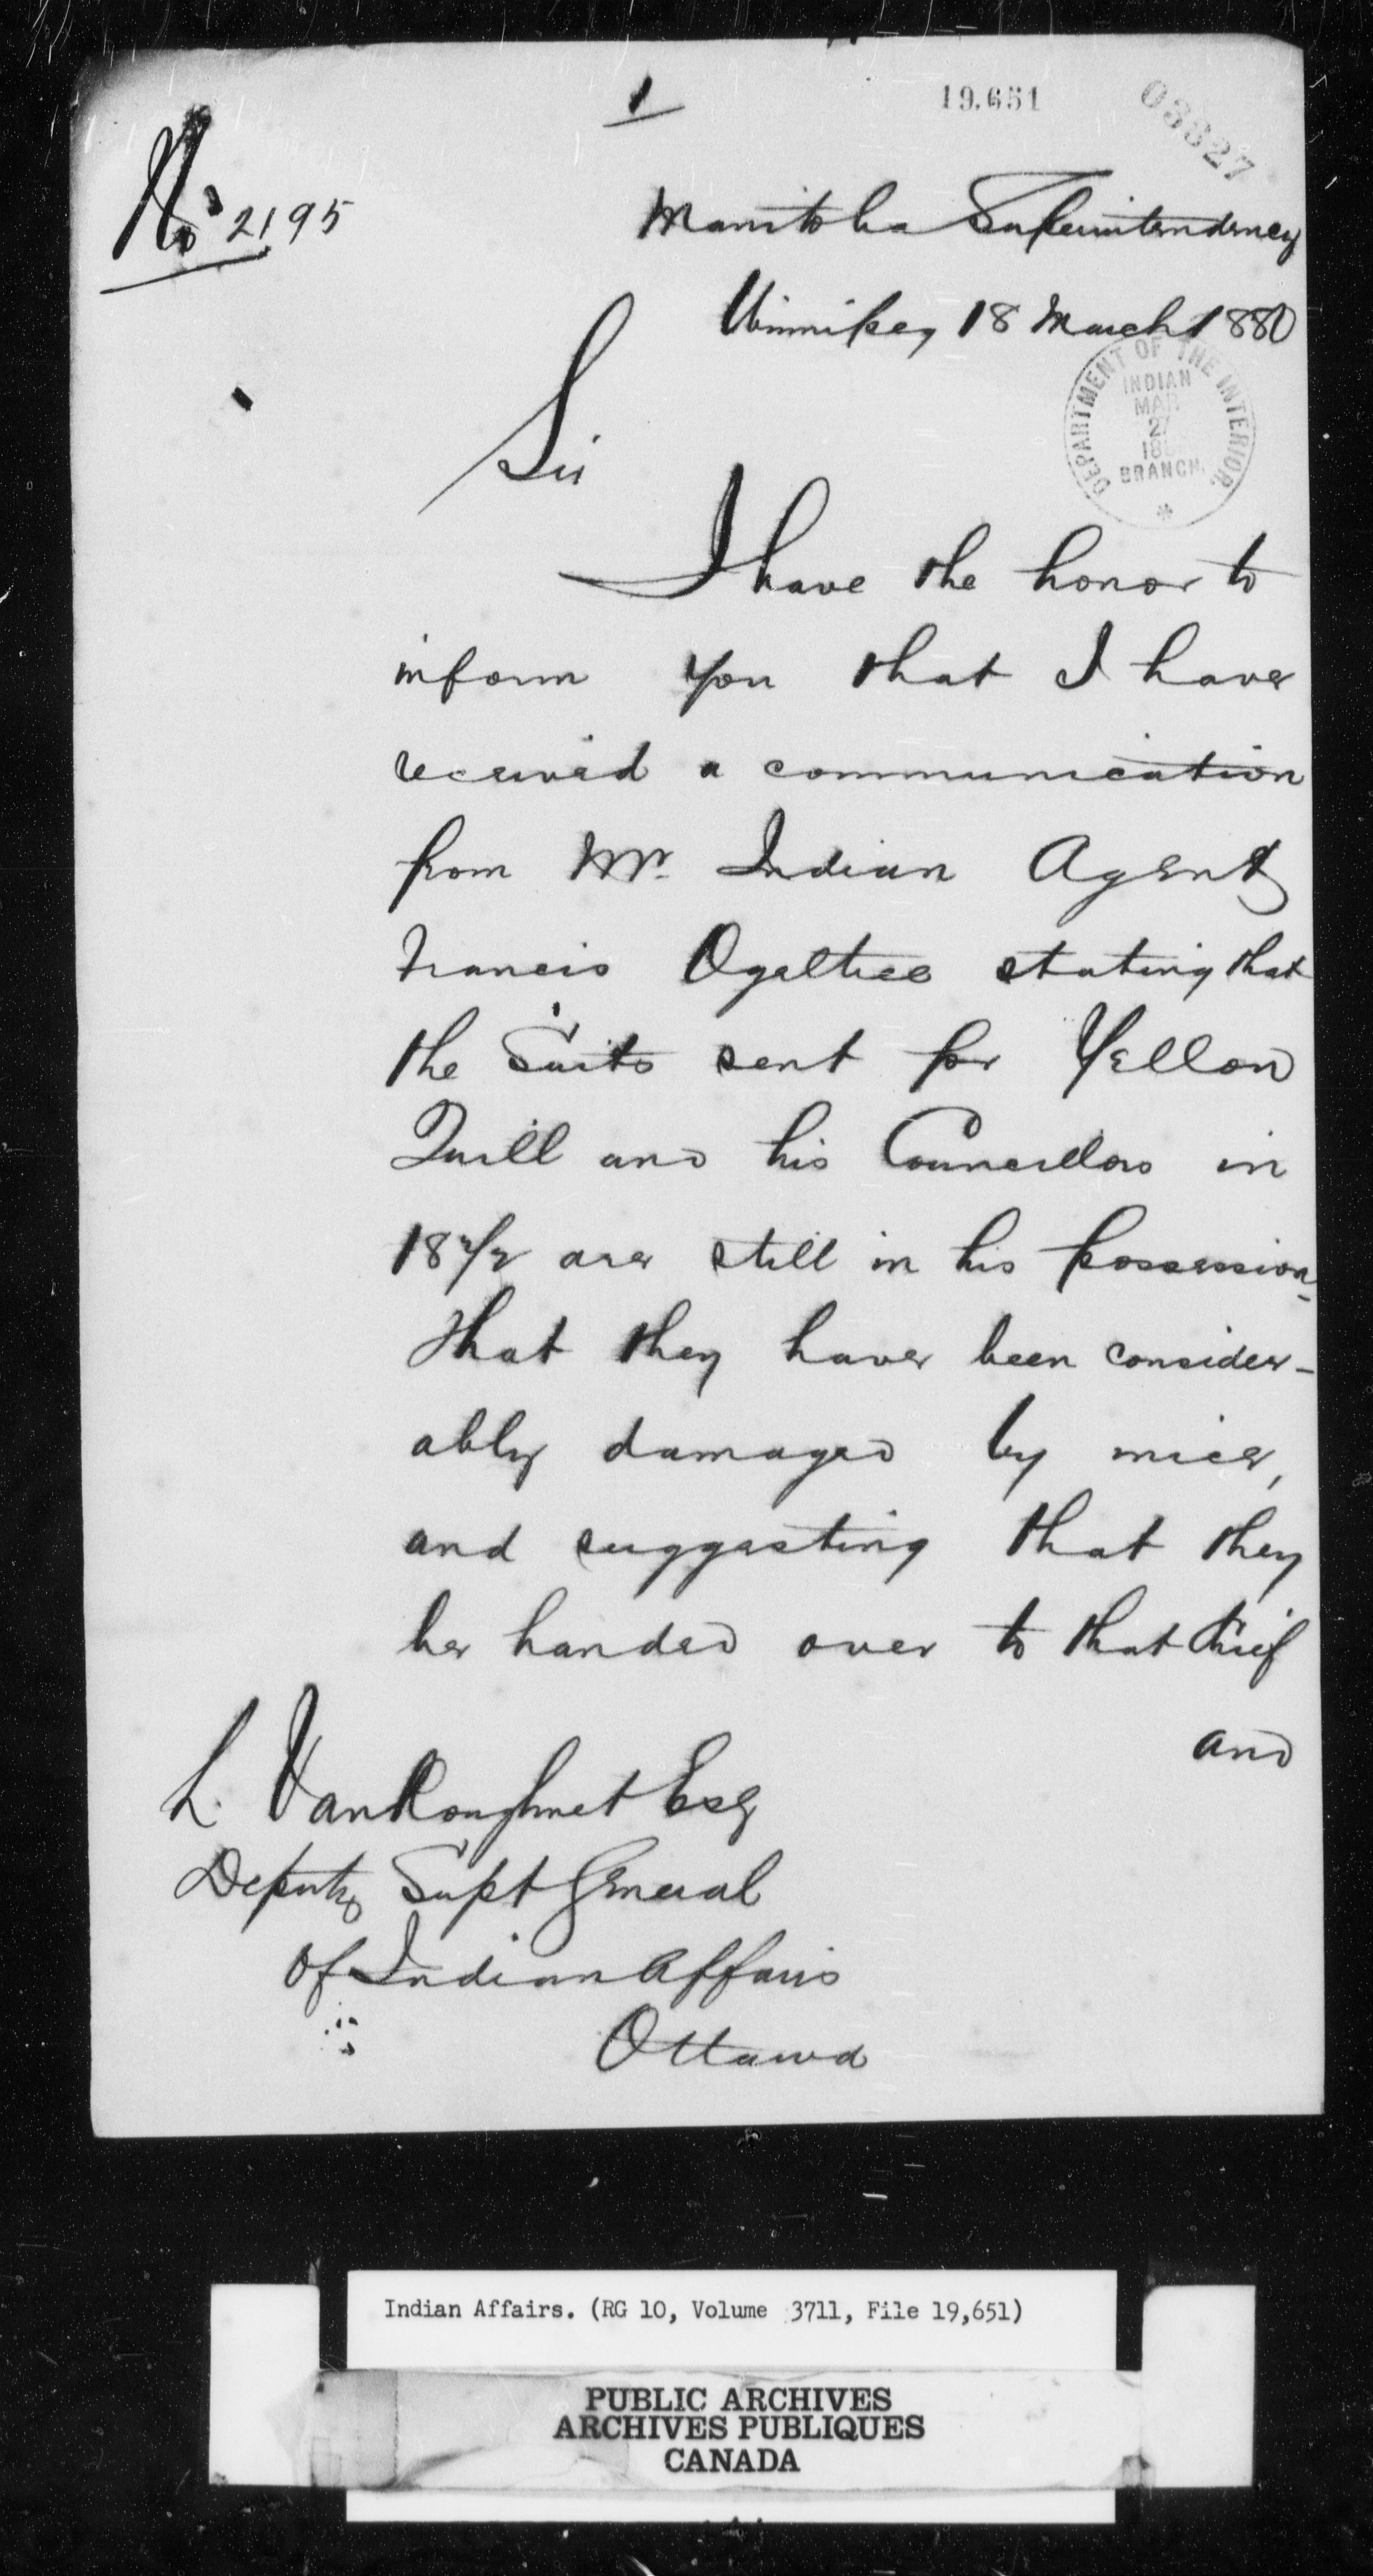 1
19.651
03327
No 2195
Manitoba Superintendency
Winnipeg 18 March 1880
DEPARTMENT OF THE INTERIOR.
INDIAN
MAR
27
188
BRANCH.
Sir
I have the honor to
inform you that I have
received a communication
from Mr. Indian Agent
Francis Ogletree stating that
the Suits sent for Yellow
Quill and his Councillors in
are still in his possession,
that they have been consider-
ably damaged by mice,
and suggesting that they
be handed over to that Chief
and
L. VanKoughnet Esq
Deputy Supt General
of Indian Affairs
Ottawa
Indian Affairs. (RG 10, Volume 3711, File 19,651)
PUBLIC ARCHIVES
ARCHIVES PUBLIQUES
CANADA